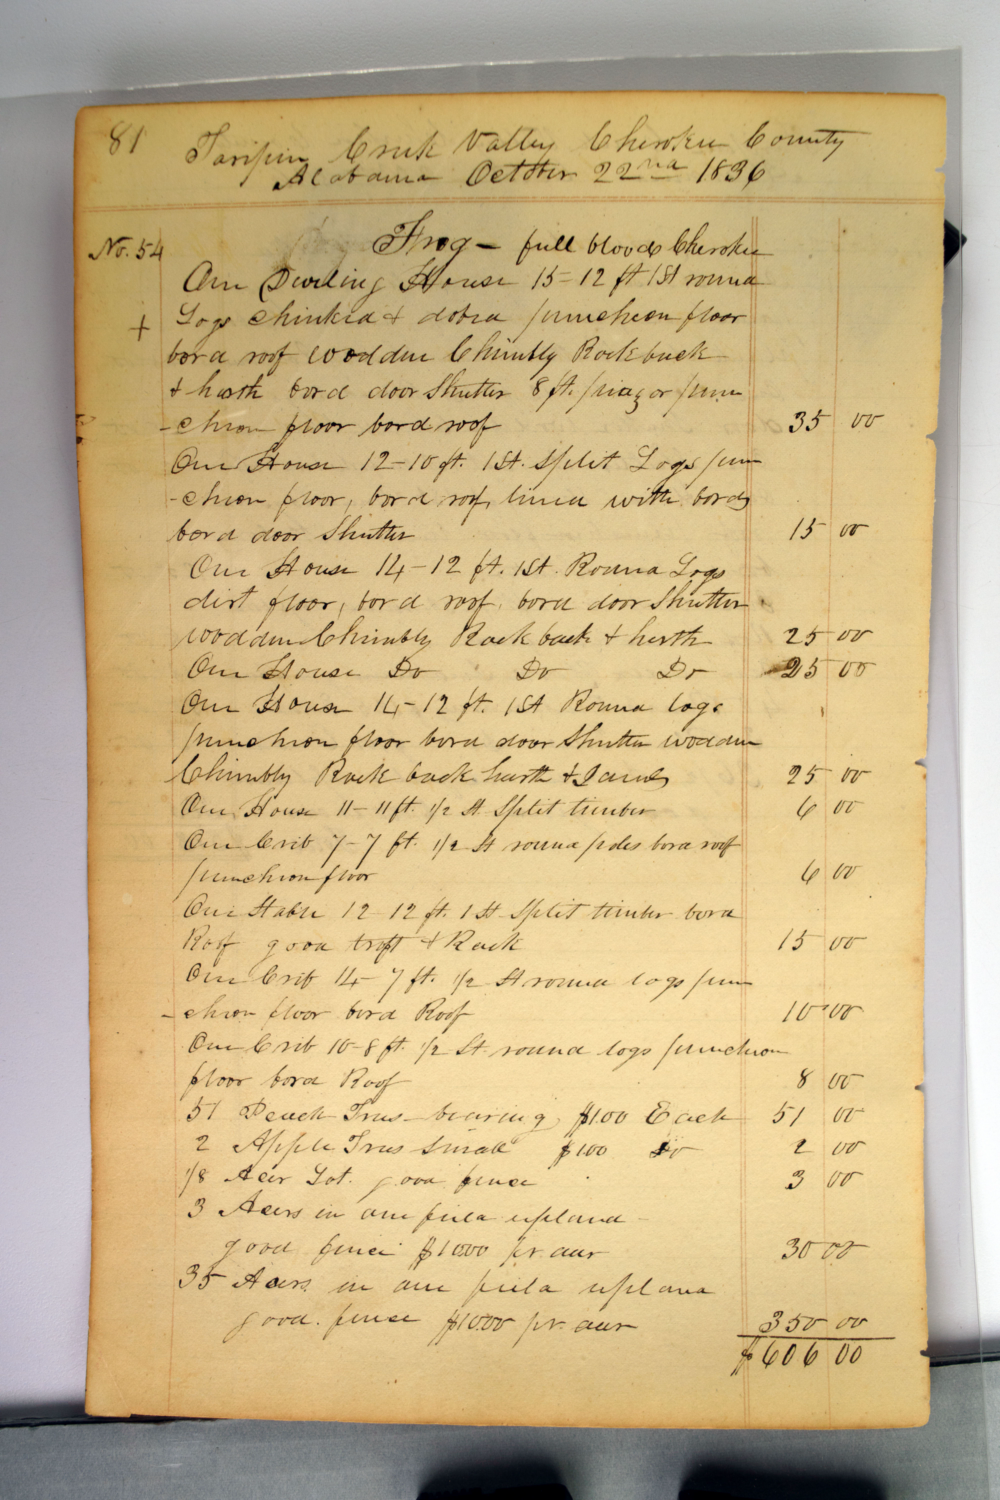 81
Taripin Creek Valley Cherokee County
Alabama October 22nd 1836
No. 54
Frog - full blood Cherokee
One Dweling House 15-12 ft 1 St round
+ Logs chinked & dobed puncheon floor
bord roof wodden Chimbly Rock back
& harth bord door Shutter 8 ft. piazor pun
-cheon floor bord roof 35 00
One House 12-10 ft. 1 St. Split Logs pun
-cheon floor, bord roof, lined with bords
bord door Shutter 15 00
One House 14-12 ft. 1 St. Round Logs
dirt floor, bord roof, bord door Shutter
wodden Chimbly Rock back & harth 25 00
One House Do Do Do 25 00
One House 14-12 ft. 1 St Round logs
puncheon floor bord door Shutter wodden
Chimbly Rock back harth & Jambs 25 00
One House 11-11 ft. 1/2 St Split timber 6 00
One Crib 7-7 ft. 1/2 St round poles bord roof
puncheon floor 6 00
One Stable 12 12 ft. 1 St Split timber bord
Roof good troft & Rack 15 00
One Crib 14-7 ft. 1/2 St round logs pun
-cheon floor bord Roof 10 00
One Crib 10-8 ft. 1/2 St. round logs puncheon
floor bord Roof 8 00
51 Peach Trees bearing $1.00 Each 51 00
2 Apple Trees Small $100 Do 2 00
1/8 Acer Lot. good fence 3 00
3 Acers in one field upland
good fence $1000 pr. acer 30 00
35 Acers in one field upland
good. fence $1000 pr. acer 350 00
$606 00